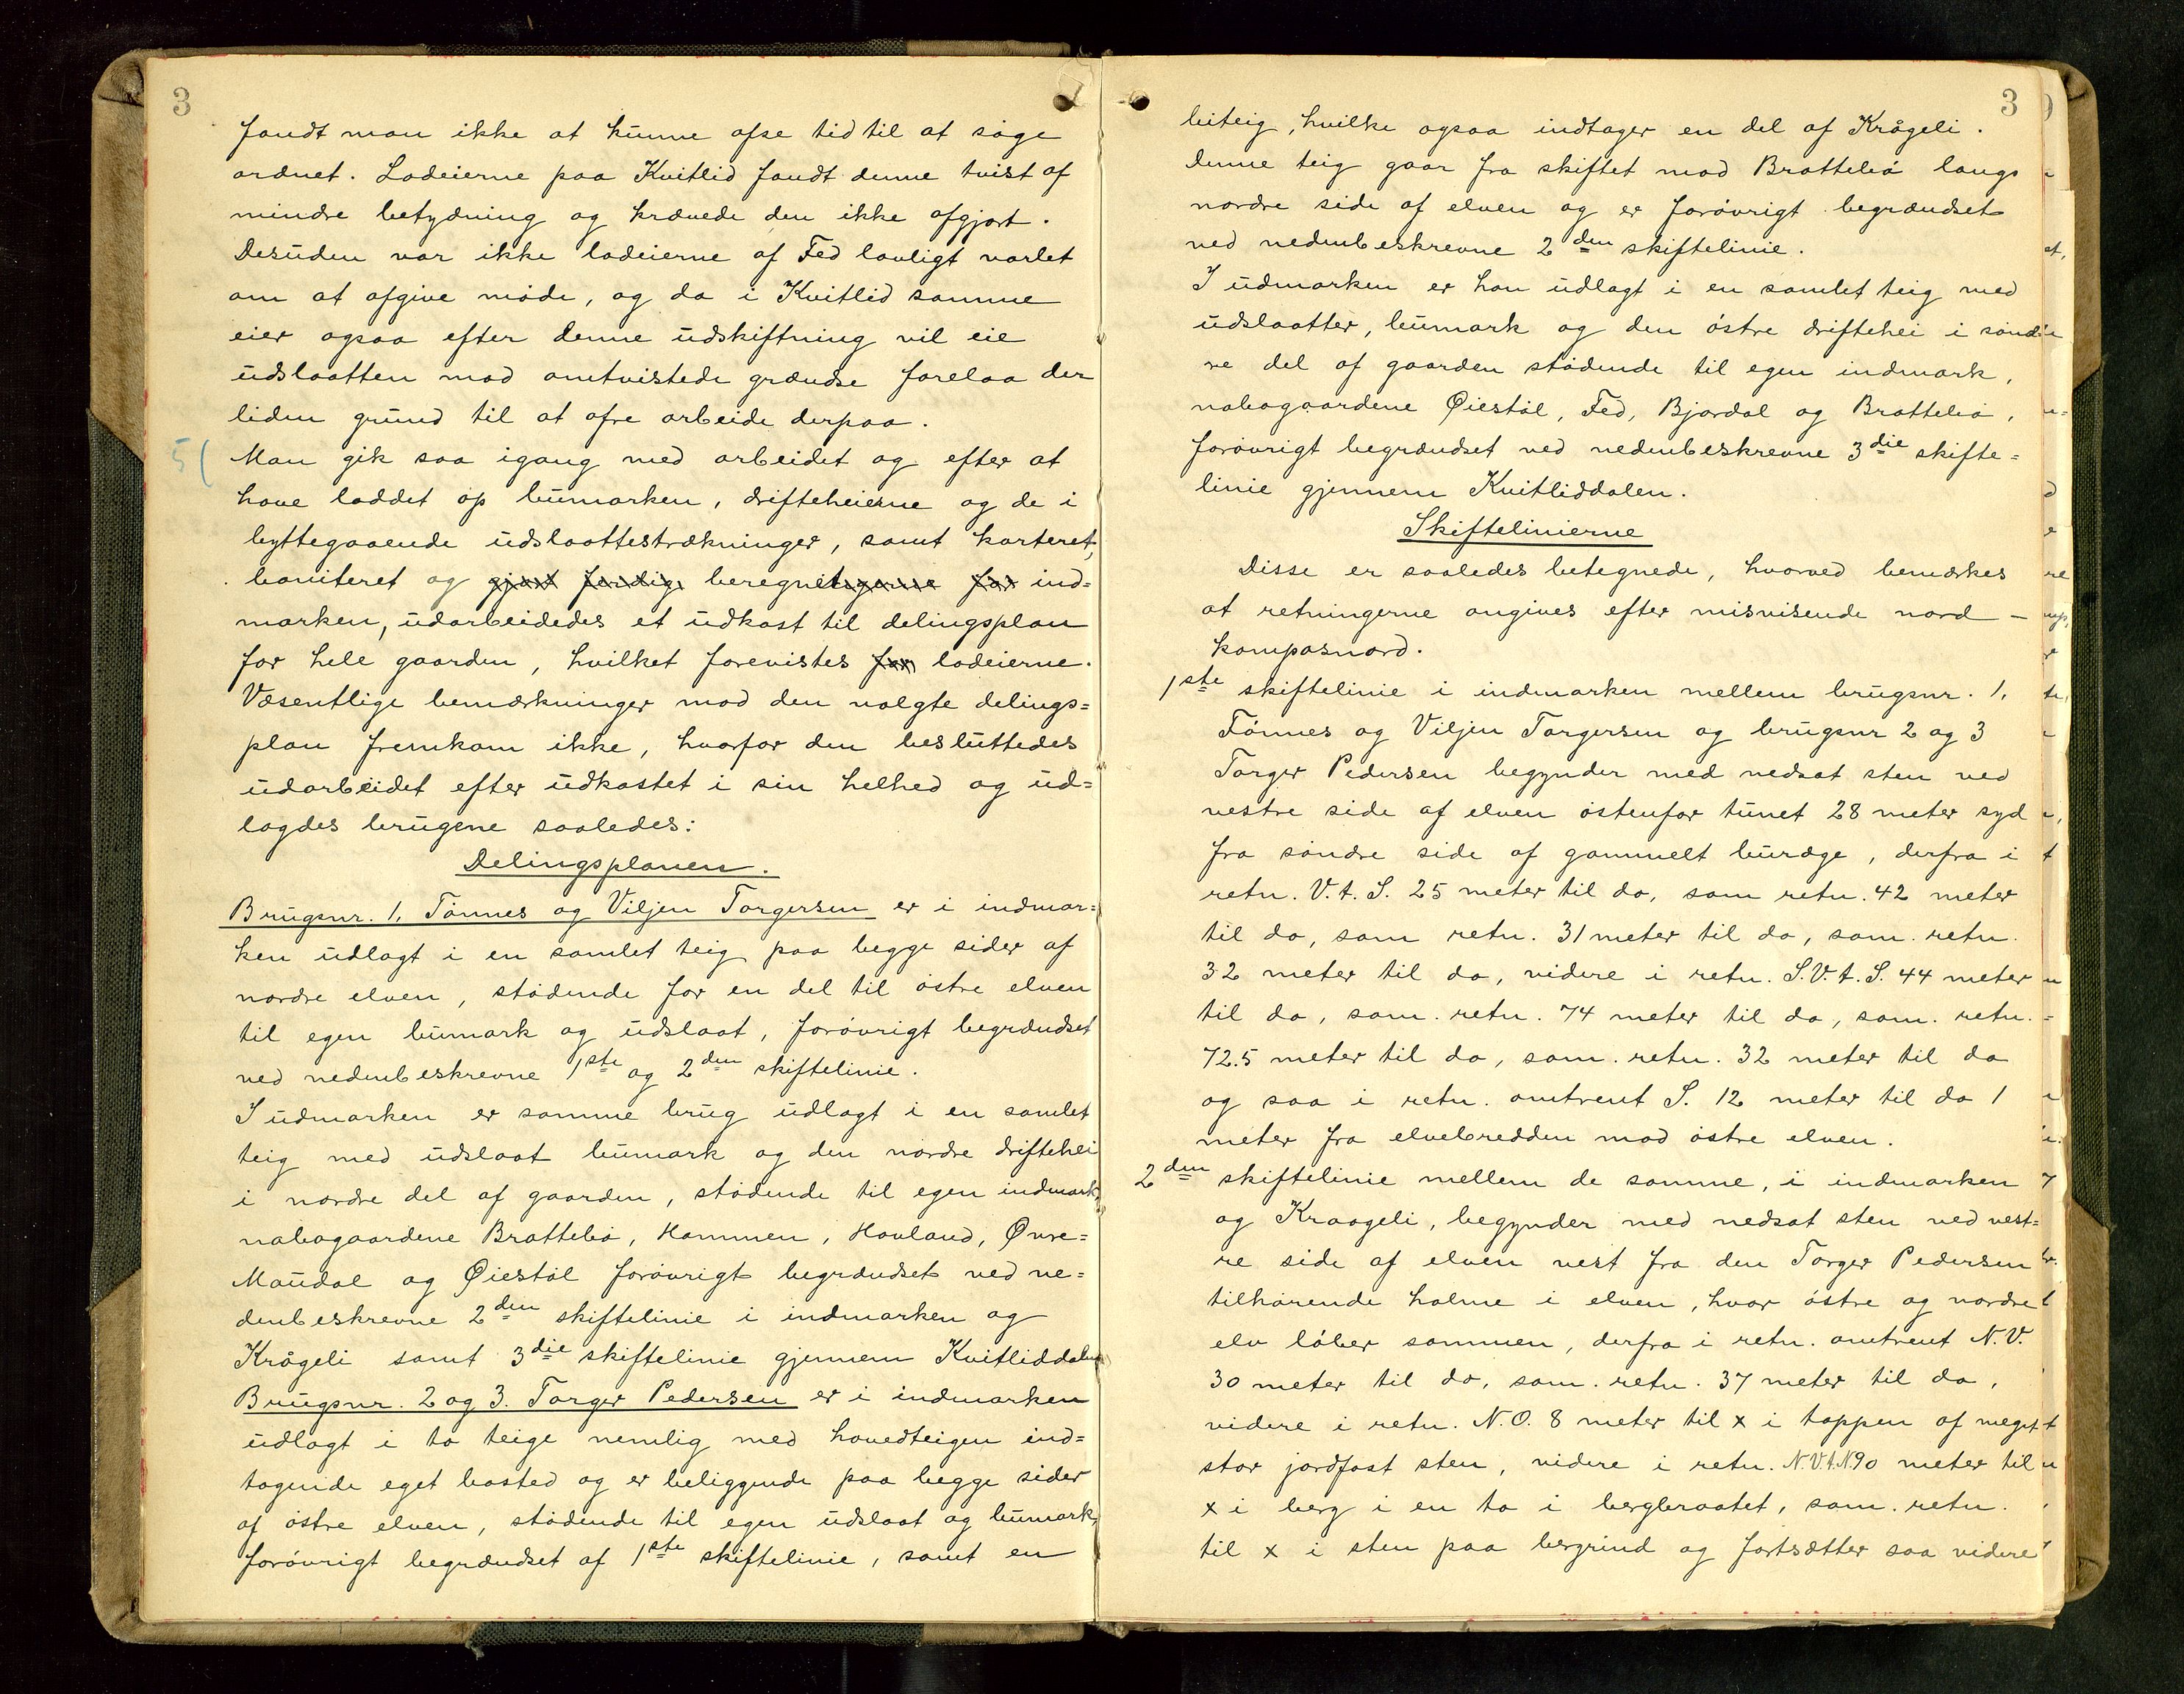 3
fandt man ikke at kunne afse tid til at søge
ordnet. Lodeierne paa Kvitlid fandt denne tvist af
mindre betydning og krævede den ikke afgjort.
Desuden var ikke lodeierne af Fed lovligt varlet
om at afgive møde, og da i Kvitlid samme
eier ogsaa efter denne udskiftning vil eie
udslaatten mod omtvistede grændse forelaa der
liden grund til at ofre arbeide derpaa.
5 (
Man gik saa igang med arbeidet og efter at
have loddet op bumarken, drifteheierne og de i
byttegaaende udslaattestrækninger, samt karteret,
boniteret og gjort færdig beregningerne for ind=
marken, udarbeidedes et udkast til delingsplan
for hele gaarden, hvilket forevistes for lodeierne.
Væsentlige bemærkninger mod den valgte delings=
plan fremkom ikke, hvorfor den besluttedes
udarbeidet efter udkastet i sin helhed og ud=
lagdes brugene saaledes:
Delingsplanen.
Brugsnr. 1, Tønnes og Viljen Torgersen er i indmar=
ken udlagt i en samlet teig paa begge sider af
nordre elven, stødende for en del til østre elven
til egen bumark og udslaat, forøvrigt begrændset
ved nedenbeskrevne 1ste og 2den skiftelinie.
I udmarken er samme brug udlagt i en samlet
teig med udslaat bumark og den nordre driftehei
i nordre del af gaarden, stødende til egen indmark,
nabogaardene Brattebø, Hammen, Hovland, Øvre=
Maudal og Øiestøl forøvrigt begrændset ved ne=
denbeskrevne 2den skiftelinie i indmarken og
Krågeli samt 3die skiftelinie gjennem Kvitliddalen
Brugsnr. 2 og 3. Torger Pedersen er i indmarken
udlagt i to teige nemlig med hovedteigen ind=
tagende eget bosted og er beliggende paa begge sider
af østre elven, stødende til egen udslaat og bumark,
forøvrigt begrændset af 1ste skiftelinie, samt en
3
beiteig, hvilke ogsaa indtager en del af Krågeli.
Denne teig gaar fra skiftet mod Brattebø langs
nordre side af elven og er forøvrigt begrændset
ved nedenbeskrevne 2den skiftelinie.
I udmarken er han udlagt i en samlet teig med
udslaatter, bumark og den østre driftehei i sønd=
re del af gaarden stødende til egen indmark,
nabogaardene Øiestøl, Fed, Bjordal og Brattebø,
forøvrigt begrændset ved nedenbeskrevne 3die skifte=
linie gjennem Kvitliddalen.
Skiftelinierne
Disse er saaledes betegnede, hvorved bemærkes
at retningerne angives efter misvisende nord –
kompasnord.
1ste skiftelinie i indmarken mellem brugsnr. 1,
Tønnes og Viljen Torgersen og brugsnr 2 og 3
Torger Pedersen begynder med nedsat sten ved
vestre side af elven østenfor tunet 28 meter syd
fra søndre side af gammelt buræge, derfra i
retn. V. t. S. 25 meter til do, sam retn. 42 meter
til do, sam retn. 31 meter til do, sam. retn.
32 meter til do, videre i retn. S.V. t. S. 44 meter
til do, sam. retn. 74 meter til do, sam. retn.
72.5 meter til do, sam. retn. 32 meter til do
og saa i retn. omtrent S. 12 meter til do 1
meter fra elvebredden mod østre elven.
2den skiftelinie mellem de samme, i indmarken
og Kraageli, begynder med nedsat sten ved vest=
re side af elven vest fra den Torger Pedersen
tilhørende holme i elven, hvor østre og nordre
elv løber sammen, derfra i retn. omtrent N.V.
30 meter til do, sam. retn. 37 meter til do,
videre i retn. N.O. 8 meter til x i toppen af meget
stor jordfast sten, videre i retn. N.V.t.N. 90 meter til
x i berg i en to i bergbraatet, sam. retn.
til x i sten paa bergrind og fortsætter saa videre